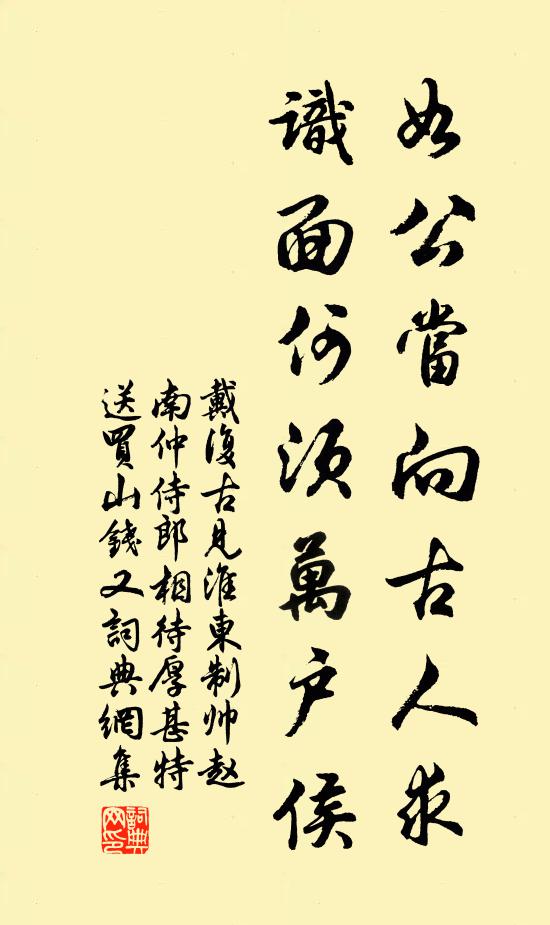 如公當向古人求
識面何須萬户侯
戴復古見淮東制帅赵
南仲侍郎相待厚甚特
送買山錢又詞典網集
詞典网印